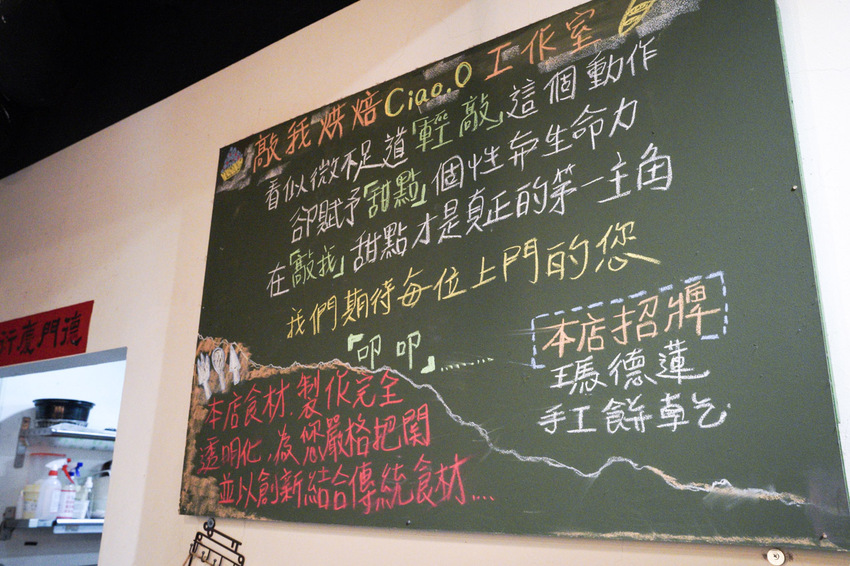 敲我烘焙Ciao.O工作室
看似微不足道「輕敲」這個動作
卻賦予「甜點」個性與生命力
在「敲我」甜點才是真正的第一主角
我們期待每位上門的您
「叩叩」……
本店招牌
瑪德蓮
手工餅乾
本店食材、製作完全
透明化,為您嚴格把関
並以創新結合傳統食材...
行慶門德